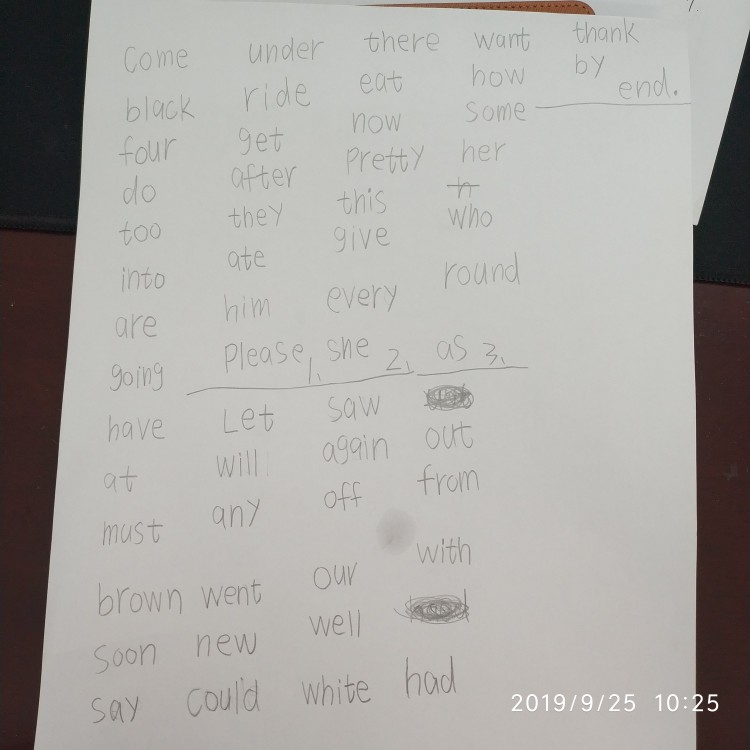 come under there want thank
black ride eat how by
four get now some end.
do after Pretty her
too they this who
into ate give round
are him every
going Please 1. she 2. as 3.
have Let saw
at will again out
must any off from
brown went our with
soon new well
say could white had
2019/9/25 10:25